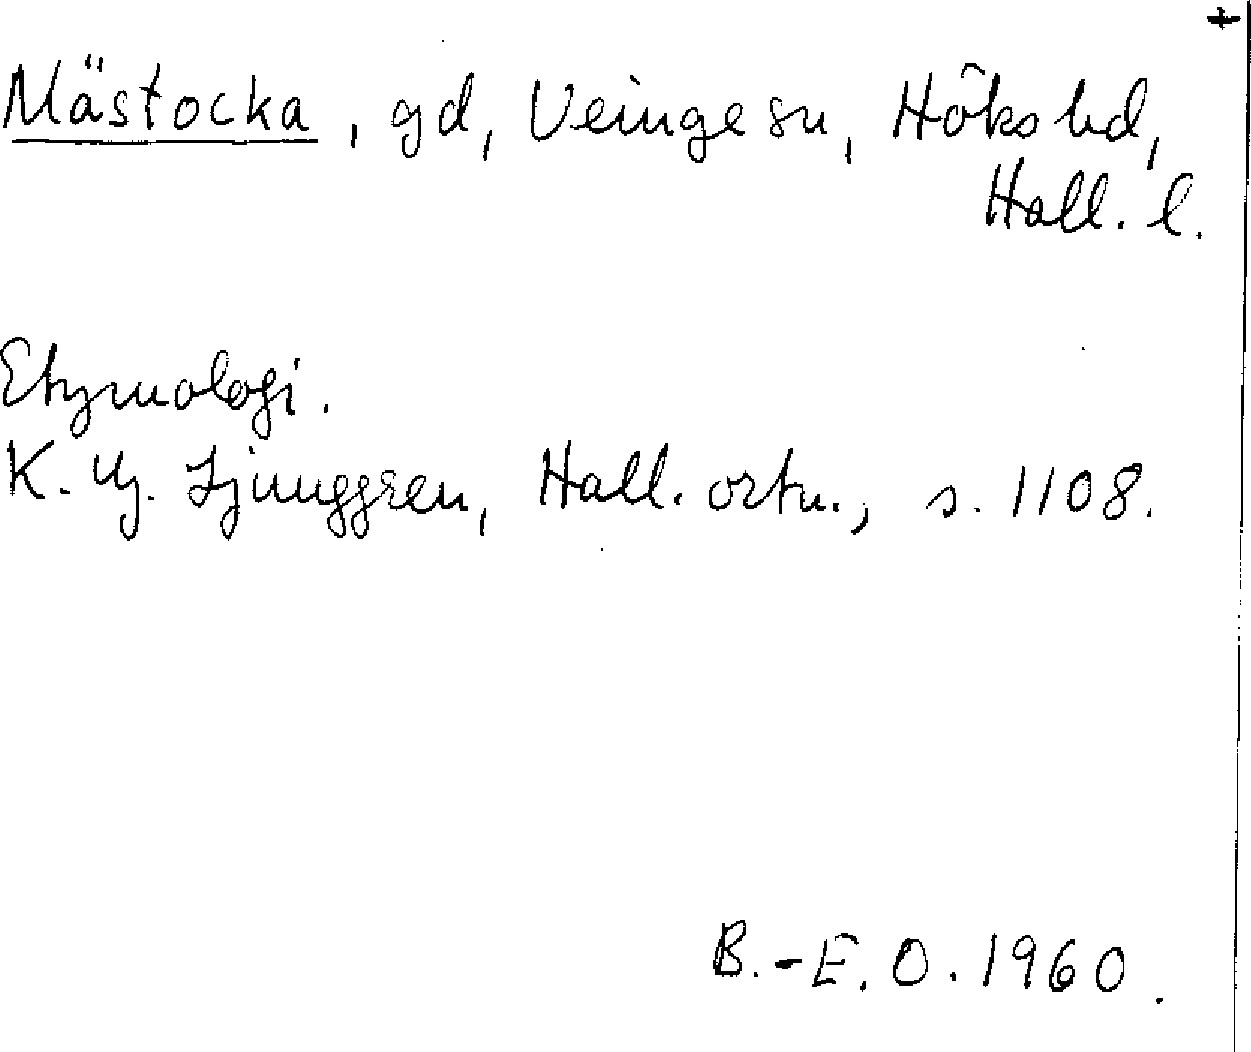 +
Mästocka, gd, Veinge sn, Höks hd,
Hall. l.
Etymologi.
K. Hj. Ljunggren, Hall. ortn., s. 1108.
B.-E. O. 1960.